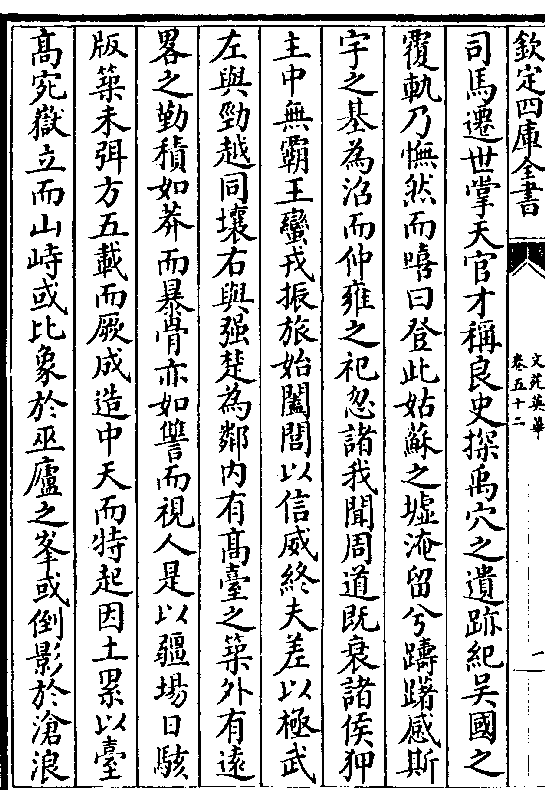 欽定四庫全書
文苑英華
卷五十二
一
司馬遷世掌天官才稱良史探禹穴之遺跡紀吴國之
覆軌乃憮然而嘻曰登此姑蘇之墟淹留兮躊躇感斯
宇之基為沼而仲雍之祀忽諸我聞周道既衰諸侯狎
主中無霸王蠻戎振旅始闔閭以信威終夫差以極武
左與勁越同壤右與强楚為鄰内有髙臺之築外有逺
畧之勤積如莽而暴骨亦如讐而視人是以疆場日駭
版築未弭方五載而厥成造中天而特起因土累以臺
髙宛嶽立而山峙或比象於巫廬之峯或倒影於滄浪